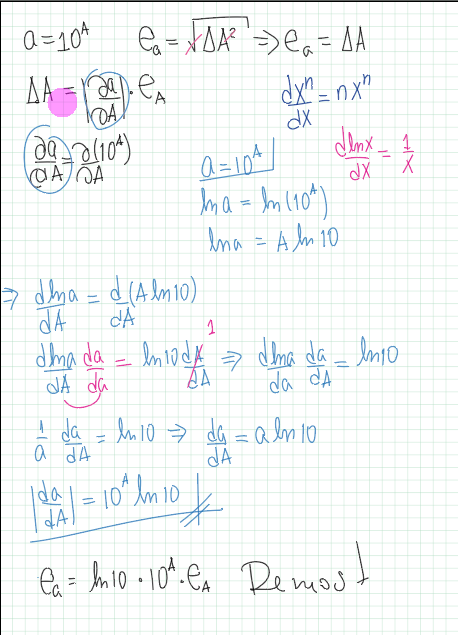 a = 10^A    e_a = √ΔA² ⇒ e_a = ΔA
ΔA = |∂a/∂A| · e_A    dx^n/dx = nx^n
∂a/∂A = ∂(10^A)/∂A    dlnx/dx = 1/x
a = 10^A
ln a = ln(10^A)
ln a = A ln 10
⇒ dlna/dA = d/dA (A ln 10)
dlna/dA da/da = ln10 dA/dA 1 ⇒ dlna/da da/dA = ln10
1/a da/dA = ln 10 ⇒ da/dA = a ln 10
|da/dA| = 10^A ln 10
e_a = ln10 · 10^A · e_A    Demost